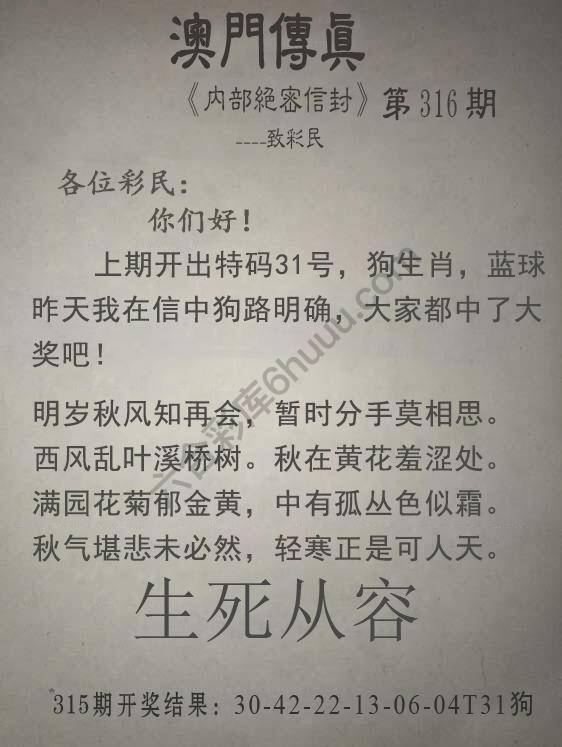 澳門傳眞
《内部絕密信封》第316期
----致彩民
各位彩民：
你们好！
上期开出特码31号，狗生肖，蓝球
昨天我在信中狗路明确，大家都中了大
奖吧！
明岁秋风知再会，暂时分手莫相思。
西风乱叶溪桥树。秋在黄花羞涩处。
满园花菊郁金黄，中有孤丛色似霜。
秋气堪悲未必然，轻寒正是可人天。
生死从容
315期开奖结果：30-42-22-13-06-04T31狗
六合彩库6huuu.com